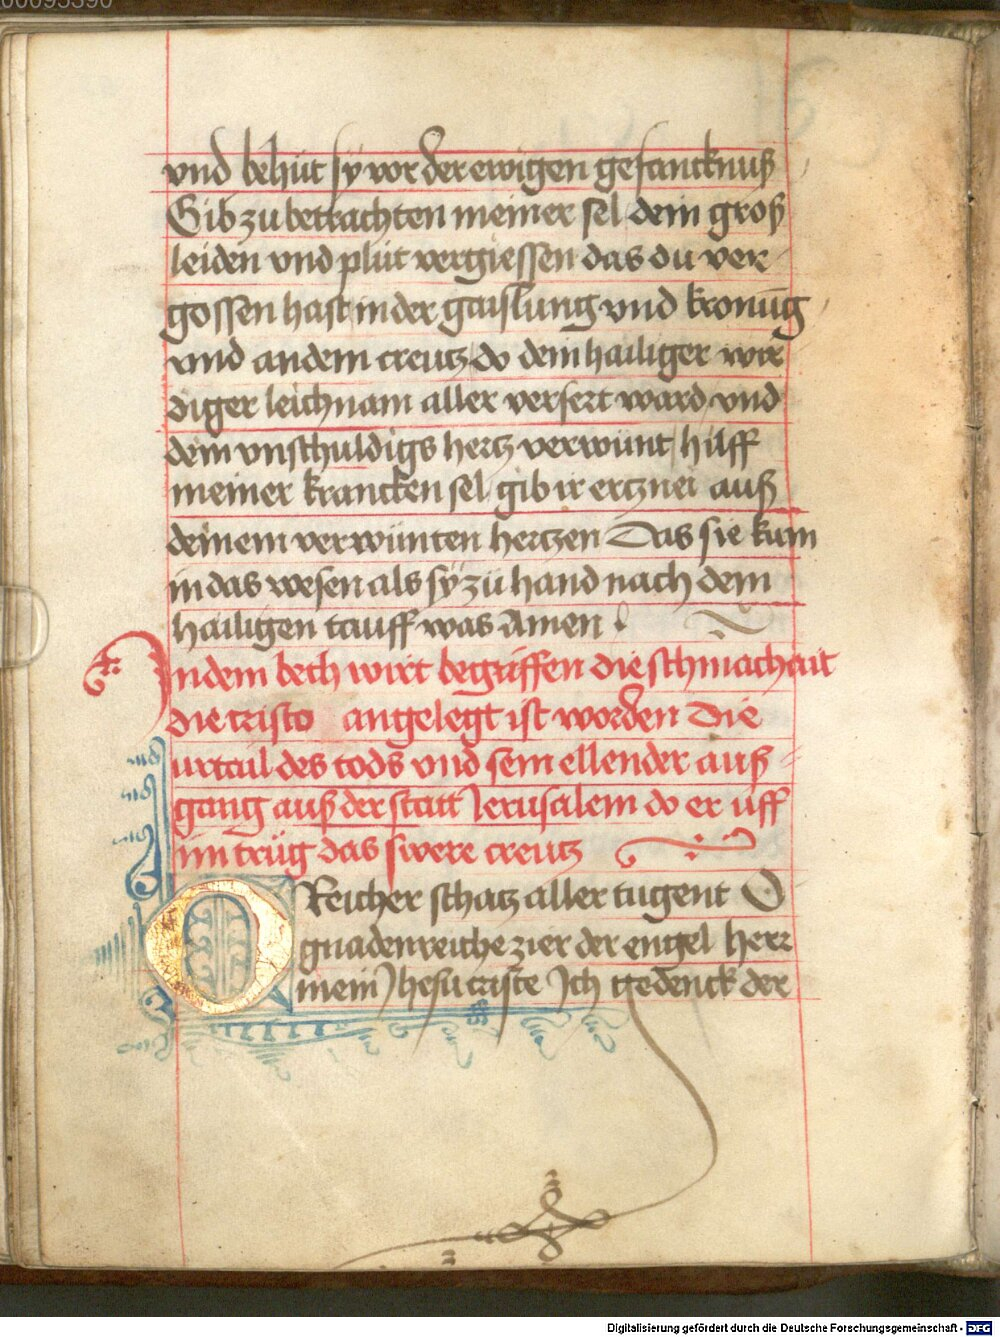 00095390
vnd behüt sy vor der ewigen gefancknuß
Gib zu betrachten meiner sel dein groß
leiden vnd plüt vergiessen das du ver
gossen hast in der gaislung vnd kronūg
vnd an dem creutz do dein hailiger wir
diger leichnam aller versert ward vnd
dein vnschuldigs hertz verwünt hilff
meiner krancken sel gib ir ertznei auß
deinem verwünten hertzen Das sie kum
in das wesen als sy zü hand nach dem
hailigen tauff was Amen
In dem beth wirt begriffen die schmachait
die cristo angelegt ist worden Die
urtail des tods vnd sein ellender auß
gang auß der statt Jerusalem do er uff
im trüg das swere creutz
O Reicher schatz aller tugent O
gnadenreiche zier der engel herr
mein Jhesu criste Ich gedenck der
Digitalisierung gefördert durch die Deutsche Forschungsgemeinschaft - DFG